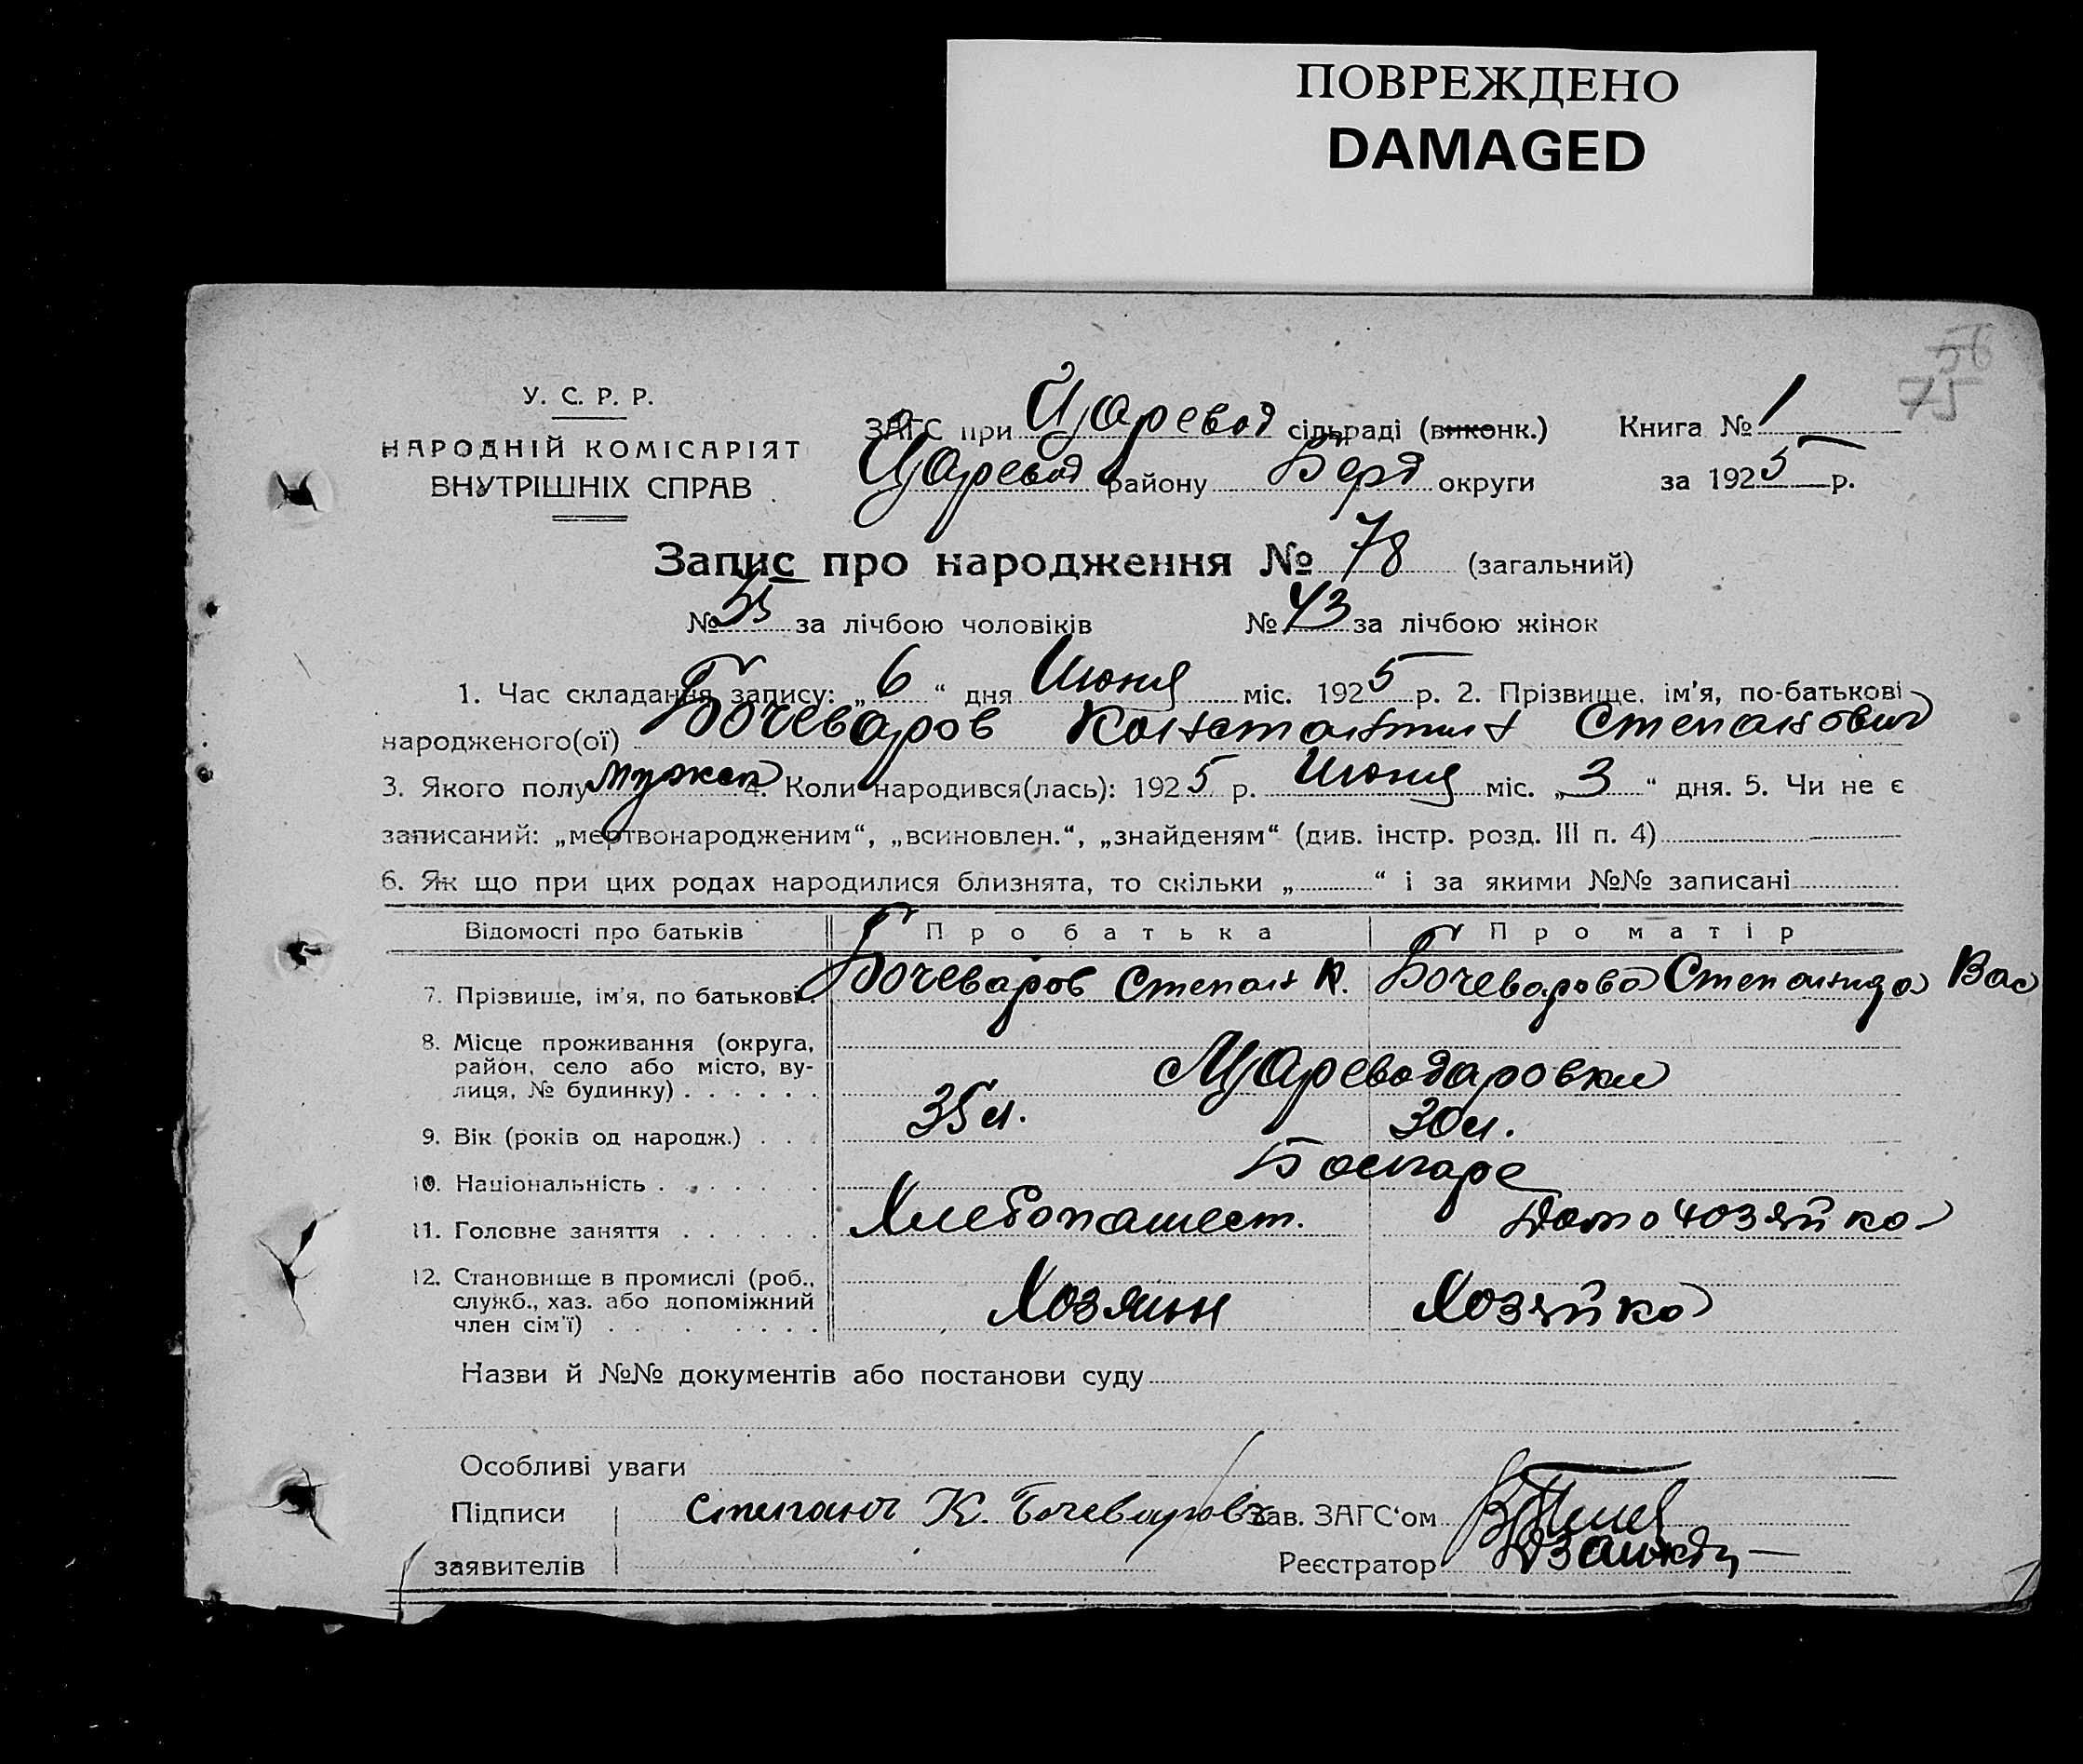 ПОВРЕЖДЕНО
DAMAGED
56
75
У. С. Р. Р.
НАРОДНІЙ КОМІСАРІЯТ
ВНУТРІШНІХ СПРАВ
ЗАГС при Царевод сільраді (виконк.) Книга № 1
Царевод району Берд округи за 1925 р.
Запис про народження № 78 (загальний)
№ 35 за лічбою чоловіків № 43 за лічбою жінок
1. Час складання запису: „6“ дня Июня міс. 1925 р. 2. Прізвище, ім'я, по-батькові
народженого(ої) Бочеваров Константин Степанович
3. Якого полу мужск 4. Коли народився(лась): 1925 р. Июня міс. „3“ дня. 5. Чи не є
записаний: „мертвонародженим“, „всиновлен.“, „знайденям“ (див. інстр. розд. III п. 4)
6. Як що при цих родах народилися близнята, то скільки „ “ і за якими №№ записані
Відомості про батьків Про батька Про матір
7. Прізвище, ім'я, по батькові. Бочеваров Степан К. Бочеварова Степанида Вас
8. Місце проживання (округа,
район, село або місто, ву-
лиця, № будинку) . . . . . . Цареводаровки
9. Вік (років од народж.) . . . 35 л. 30 л.
10. Національність . . . . . . Болгаре
11. Головне заняття . . . . . . Хлебопашест. Домохозяйка
12. Становище в промислі (роб.,
служб., хаз. або допоміжний
член сім'ї) . . . . . . . . Хозяин Хозяйка
Назви й №№ документів або постанови суду
Особливі уваги
Підписи Степанъ К. Бочеваровъ Зав. ЗАГС'ом
заявителів Реєстратор